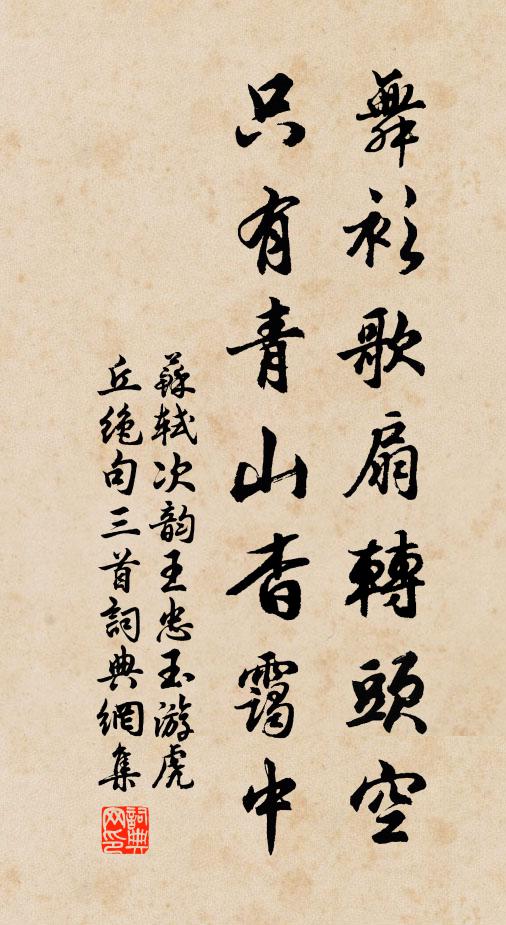 舞衫歌扇轉頭空
只有青山杳靄中
蘇軾次韵王忠玉游虎
丘絶句三首詞典網集
詞典网印